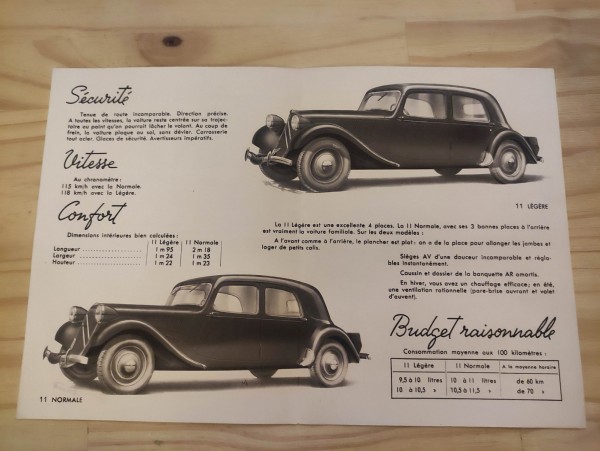 Sécurité
Tenue de route incomparable. Direction précise.
A toutes les vitesses, la voiture reste centrée sur sa trajec-
toire au point qu'on pourrait lâcher le volant. Au coup de
frein, la voiture plaque au sol, sans dévier. Carrosserie
tout acier. Glaces de sécurité. Avertisseurs impératifs.
Vitesse
Au chronomètre :
115 km/h avec la Normale.
118 km/h avec la Légère.
Confort
Dimensions intérieures bien calculées :
11 Légère 11 Normale
Longueur 1 m 95 2 m 18
Largeur 1 m 24 1 m 35
Hauteur 1 m 22 1 m 23
11 NORMALE
11 LÉGÈRE
La 11 Légère est une excellente 4 places. La 11 Normale, avec ses 3 bonnes places à l'arrière
est vraiment la voiture familiale. Sur les deux modèles :
A l'avant comme à l'arrière, le plancher est plat : on a de la place pour allonger les jambes et
loger de petits colis.
Sièges AV d'une douceur incomparable et régla-
bles instantanément.
Coussin et dossier de la banquette AR amortis.
En hiver, vous avez un chauffage efficace ; en été,
une ventilation rationnelle (pare-brise ouvrant et volet
d'auvent).
Budget raisonnable
Consommation moyenne aux 100 kilomètres :
11 Légère 11 Normale A la moyenne horaire
9,5 à 10 litres 10 à 11 litres de 60 km
10 à 10,5 » 10,5 à 11,5 » de 70 »